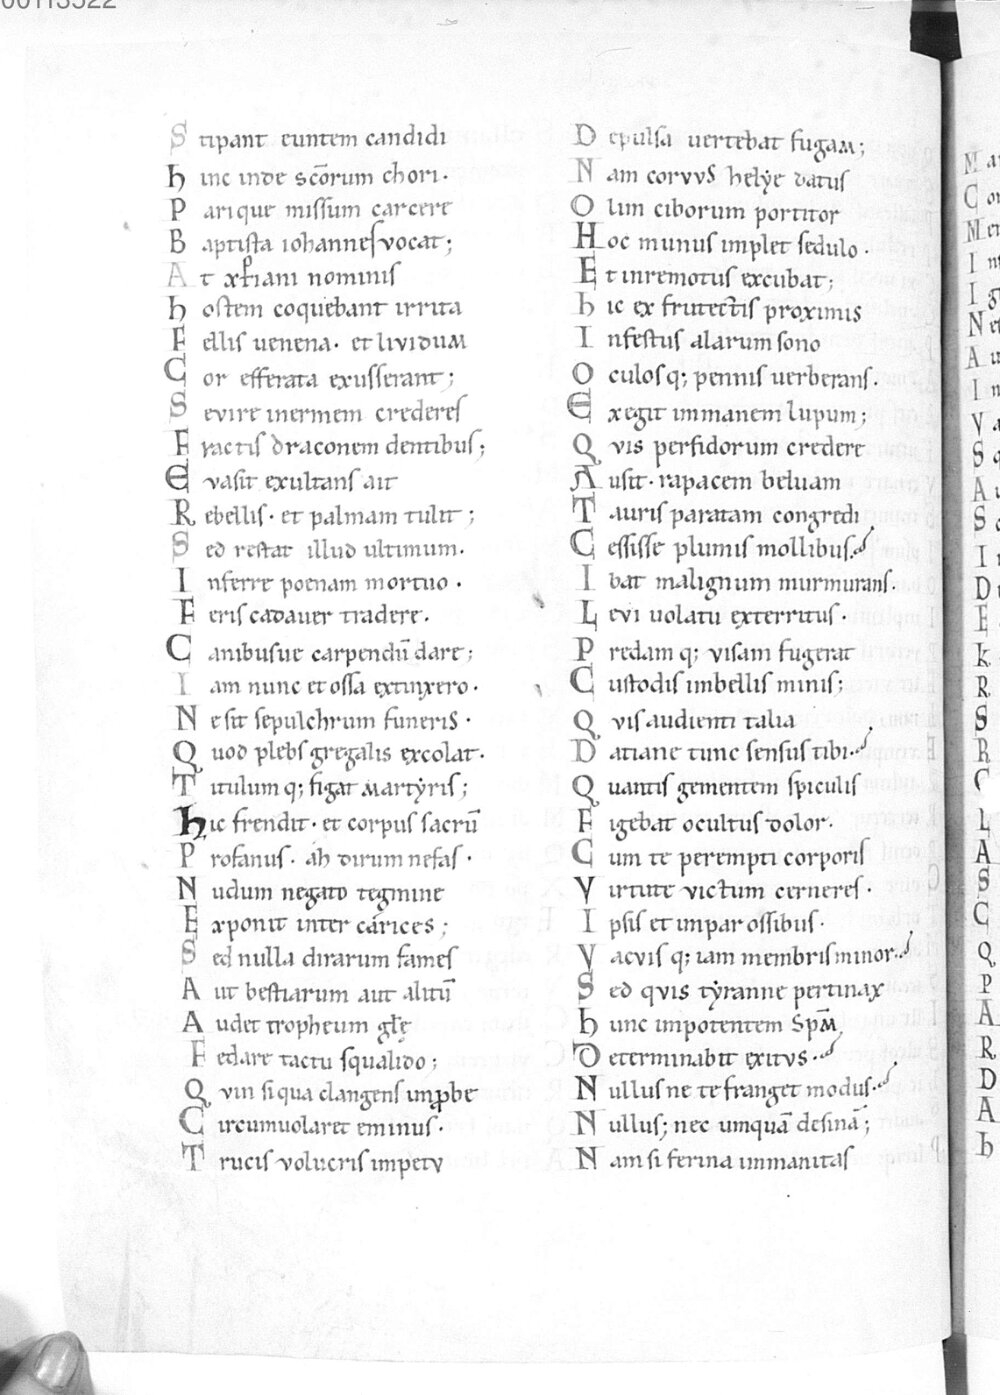 Stipant euntem candidi
hinc inde sc̄orum chori.
Parique missum carcere
Baptista iohannes vocat;
At xp̄iani nominis
hostem coquebant irrita
Fellis uenena. et lividum
Cor efferata exusserant;
Sevire inermem crederes
Fractis draconem dentibus;
Evasit exultans ait
Rebellis. et palmam tulit;
Sed restat illud ultimum.
Inferre poenam mortuo.
Feris cadauer tradere.
Canibusue carpendū dare;
Iam nunc et ossa extinxero.
Ne sit sepulchrum funeris.
Quod plebs gregalis excolat.
Titulum q; figat martyris;
hic frendit. et corpus sacrū
Profanus. ah dirum nefas.
Nudum negato tegmine
Exponit inter carices;
Sed nulla dirarum fames
Aut bestiarum aut alitū
Audet tropheum gl̄ę
Fedare tactu squalido;
Qvin si qua clangens improbe
Circumuolaret eminus.
Trucis volucris impetv
Depulsa uertebat fugam;
Nam corvvs helye datus
Olim ciborum portitor
Hoc munus implet sedulo.
Et inremotus excubat;
hic ex frutectis proximis
Infestus alarum sono
Oculos q; pennis uerberans.
Exegit immanem lupum;
Qvis perfidorum credere
Ausit. rapacem beluam
Tauris paratam congredi
Cessisse plumis mollibus.
Ibat malignum murmurans.
Levi uolatu exterritus.
Predam q; visam fugerat
Custodis imbellis minis;
Qvis audienti talia
Datiane tunc sensus tibi.
Quantis gementem spiculis
Figebat ocultus dolor.
Cum te perempti corporis
Virtute victum cerneres.
Ipsis et impar ossibus.
Vacvis q; iam membris minor.
Sed qvis tyranne pertinax
hunc impotentem sp̄m
Determinabit exitvs.
Nullus ne te franget modus.
Nullus; nec umquā desinā;
Nam si ferina immanitas